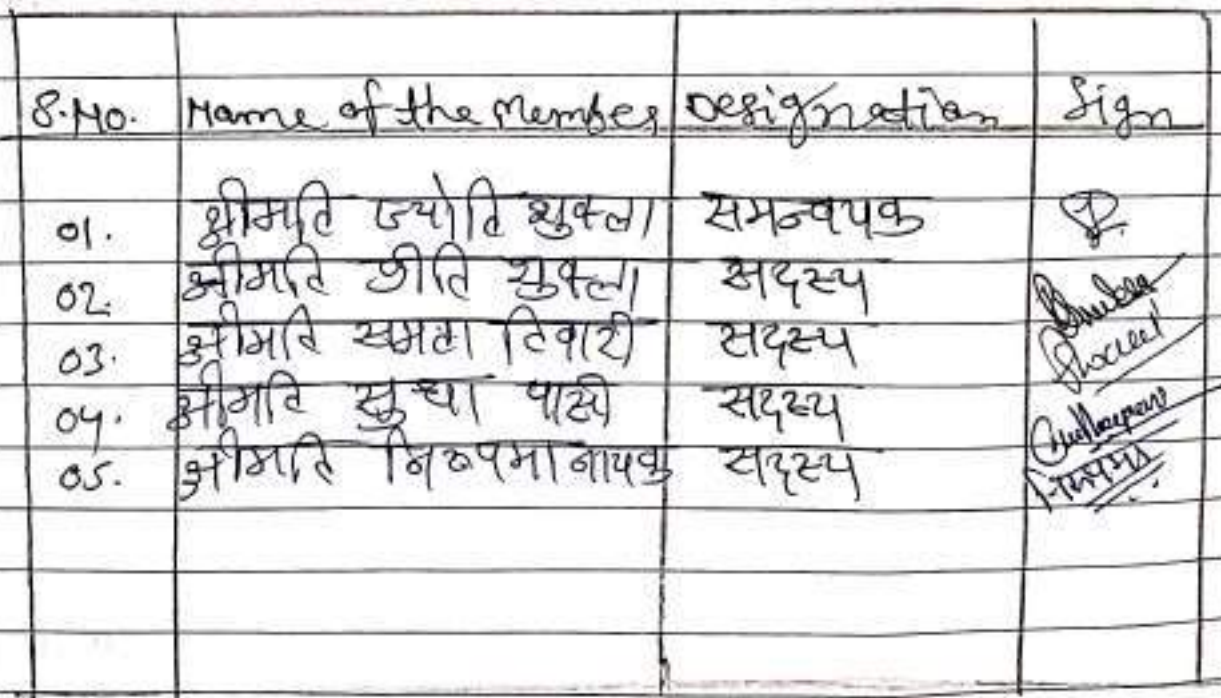 S.No. Name of the Member Designation Sign
01. श्रीमति ज्योति शुक्ला समन्वयक
02. श्रीमति प्रीति शुक्ला सदस्य
03. श्रीमति समता तिवारी सदस्य
04. श्रीमति सुधा पासी सदस्य
05. श्रीमति निरूपमा नायक सदस्य निरूपमा